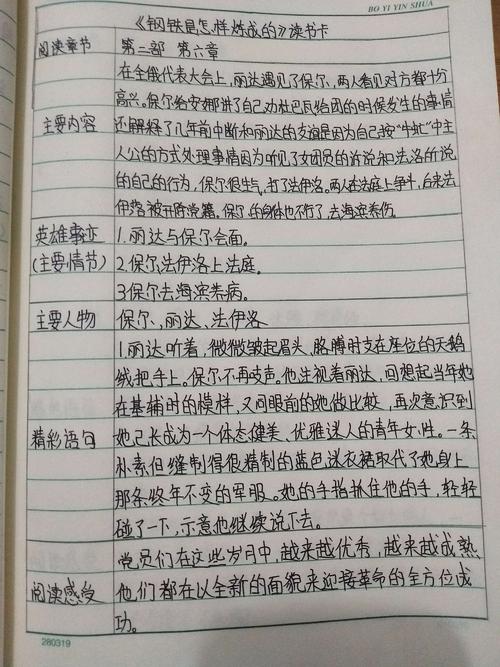 BO YI YIN SHUA
《钢铁是怎样炼成的》读书卡
阅读章节 第二部 第六章
在全俄代表大会上，丽达遇见了保尔，两人看见对方都十分
高兴。保尔给安娜讲了自己劝杜巴瓦给团的时候发生的事情
主要内容 还解释了几年前中断和丽达的友谊是因为自己按“牛虻”中主
人公的方式处理事情因为听见了女团员的诉说和法洛所说
的自己的行为，保尔很生气，打了法伊洛。两人在法庭上争斗，后来法
伊洛被开除党籍。保尔的身体也不行了，去海滨养伤。
英雄事迹 1.丽达与保尔会面。
(主要情节) 2.保尔、法伊洛上法庭。
3.保尔去海滨养病。
主要人物 保尔、丽达、法伊洛
1.丽达听着，微微皱起眉头，胳膊肘支在座位的天鹅
绒把手上。保尔不再吱声。他注视着丽达，回想起当年她
在基辅时的模样，又同眼前的她做比较，再次意识到
精彩语句 她已长成为一个体态健美、优雅迷人的青年女性。一条
朴素但缝制得很精制的蓝色连衣裙取代了她身上
那条终年不变的军服。她的手指抓住他的手，轻轻
碰了一下，示意他继续说下去。
党员们在这些岁月中，越来越优秀，越来越成熟
阅读感受 他们都在以全新的面貌来迎接革命的全方位成
功。
280319